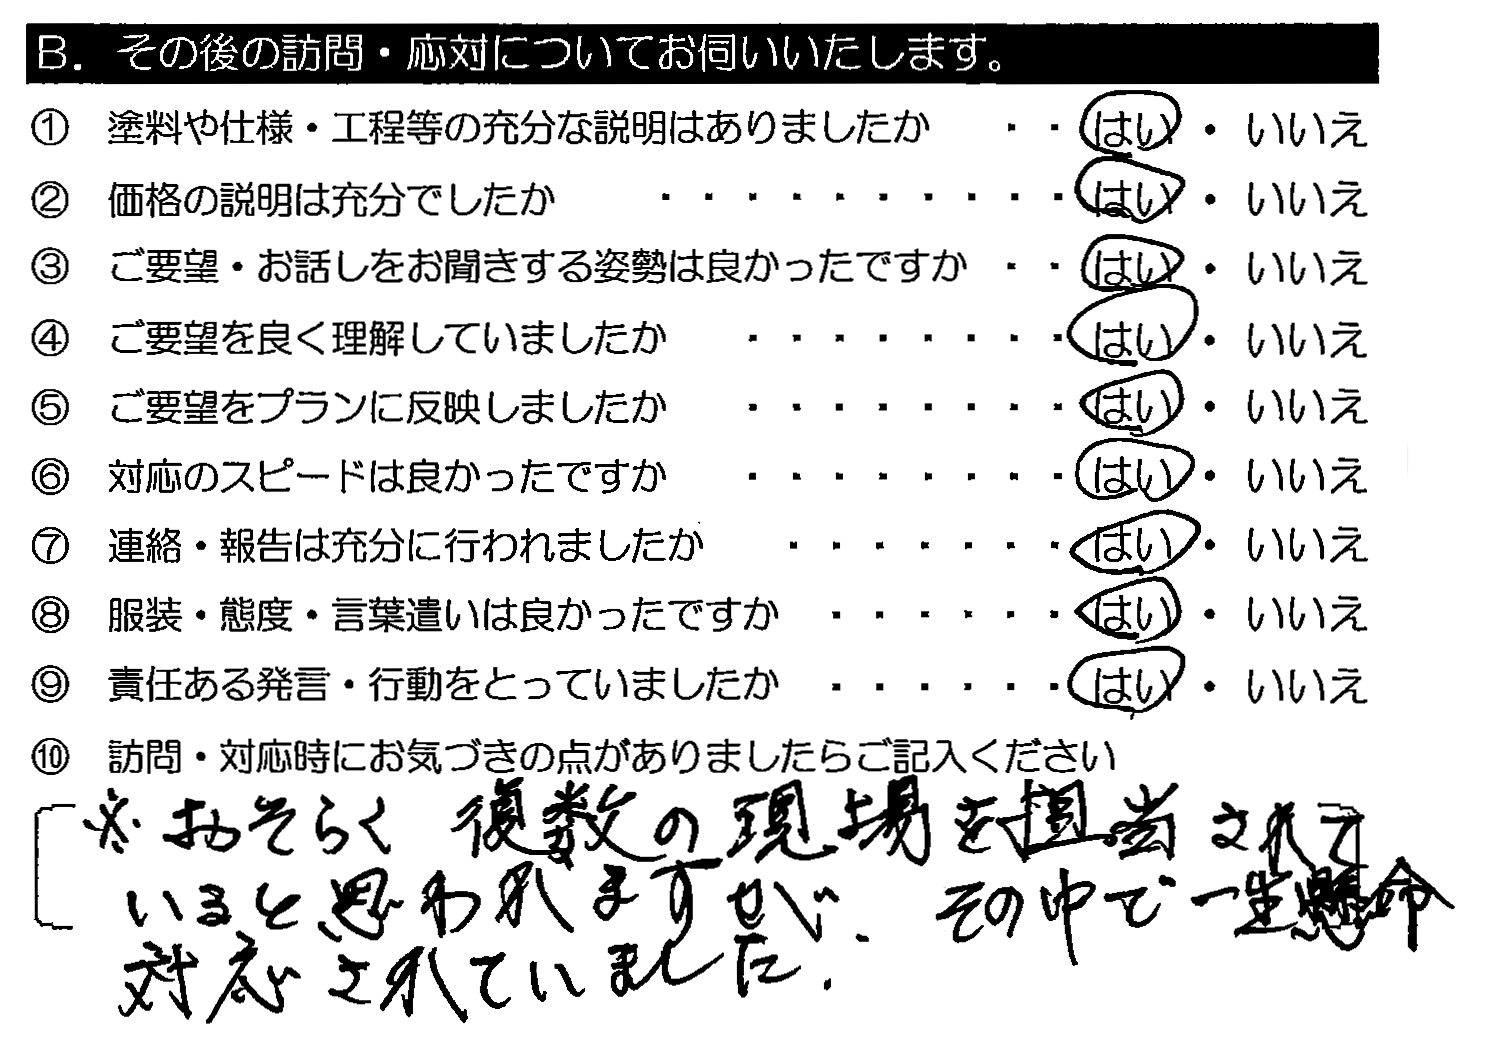 B. その後の訪問・応対についてお伺いいたします。
① 塗料や仕様・工程等の充分な説明はありましたか ・・はい・いいえ
② 価格の説明は充分でしたか ・・・・・・・・・・はい・いいえ
③ ご要望・お話しをお聞きする姿勢は良かったですか ・・はい・いいえ
④ ご要望を良く理解していましたか ・・・・・・・・はい・いいえ
⑤ ご要望をプランに反映しましたか ・・・・・・・・はい・いいえ
⑥ 対応のスピードは良かったですか ・・・・・・・・はい・いいえ
⑦ 連絡・報告は充分に行われましたか ・・・・・・・はい・いいえ
⑧ 服装・態度・言葉遣いは良かったですか ・・・・・・はい・いいえ
⑨ 責任ある発言・行動をとっていましたか ・・・・・・はい・いいえ
⑩ 訪問・対応時にお気づきの点がありましたらご記入ください
※おそらく複数の現場を担当されて
いると思われますせが、その中で一生懸命
対応されていました.